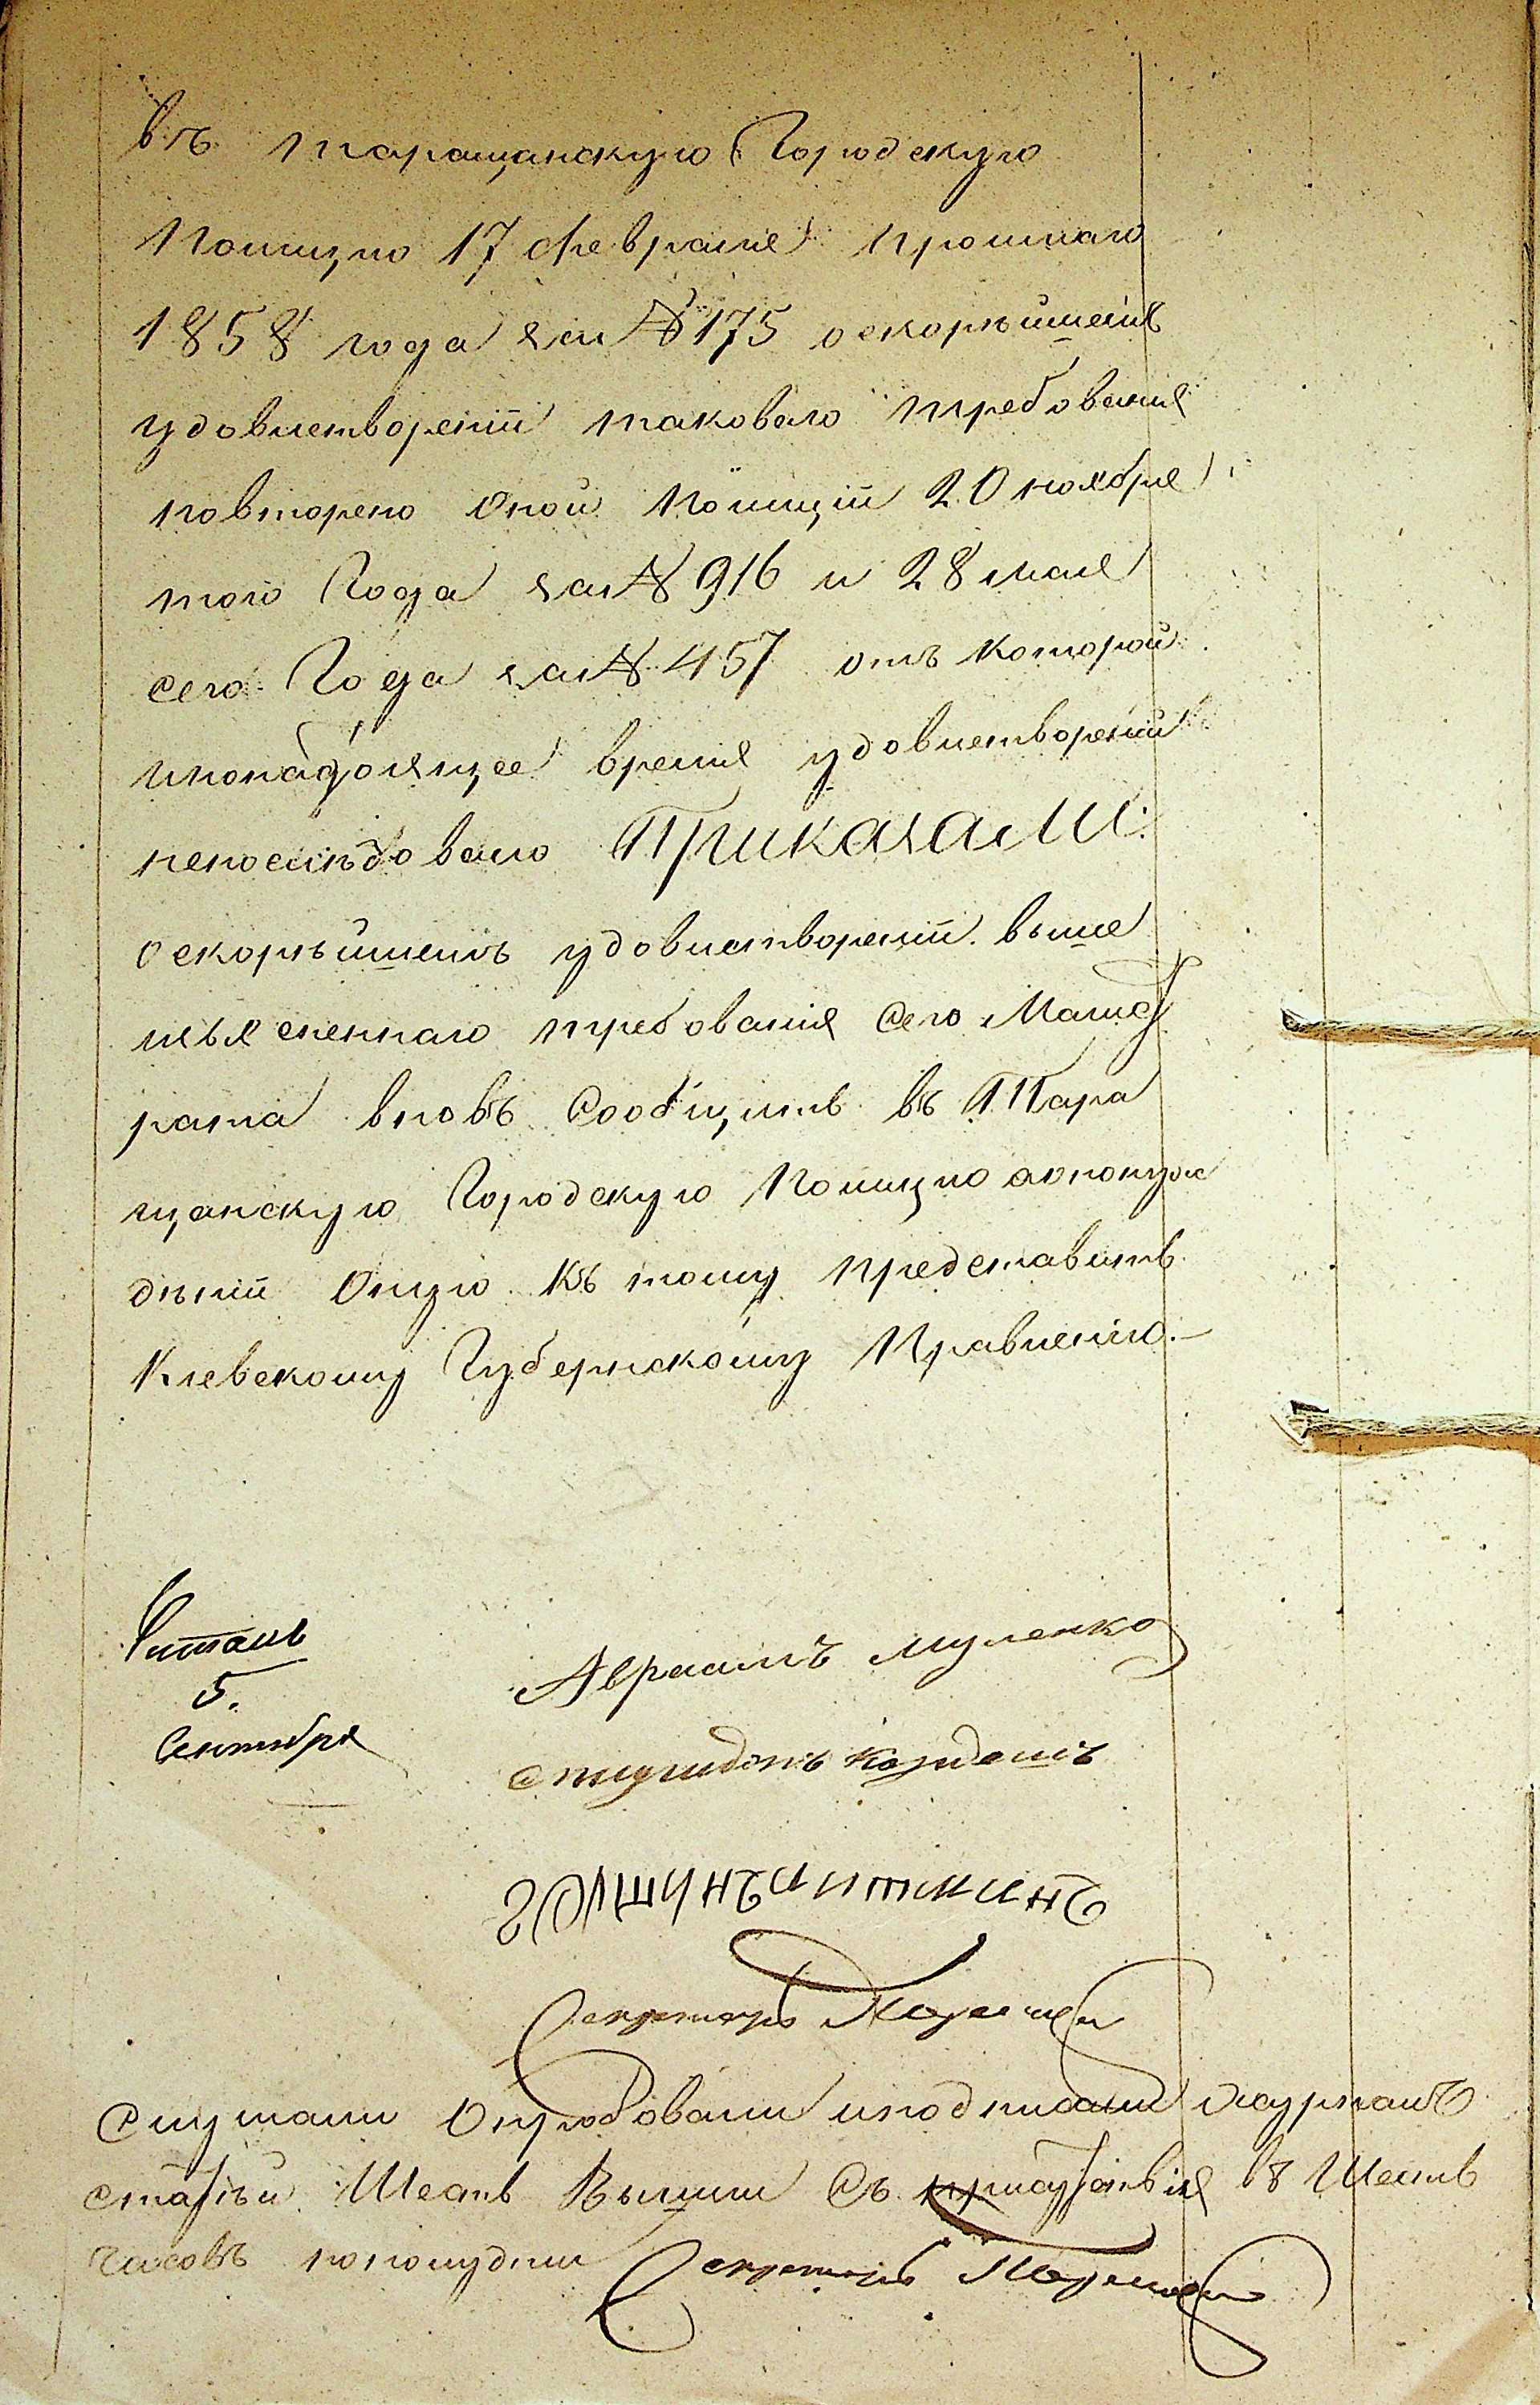 въ Таращанскую Городскую
Полицію 17 февраля прошлаго
1858 года за № 175 оскорѣйшемъ
удовлетвореніи таковаго требованія
повторено оной Полиціи 20 ноября
того Года за № 916 и 28 мая
сего Года за № 457 отъ которой
инонастоящее время удовлетвореніи
непослѣдовало Приказали:
оскорѣйшемъ удовлетвореніи выше
изъясненнаго требованія сего Магист
рата вновь Сообщить въ Тара
щанскую Городскую Полицію опонуж
дѣніи оную къ тому представить
Кіевскому Губернскому Правленію.—
Читалъ
5.
Сентября
Авраамъ
Секретарь
Слушали опробовали иподписали журналъ
статьи Шесть Вышли Съ присутствія в 8 Шесть
часовъ пополудни Секретарь